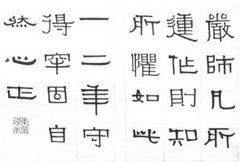 嚴師凡所
動作則知
所懼如此
一二年守
得牢固自
然心正